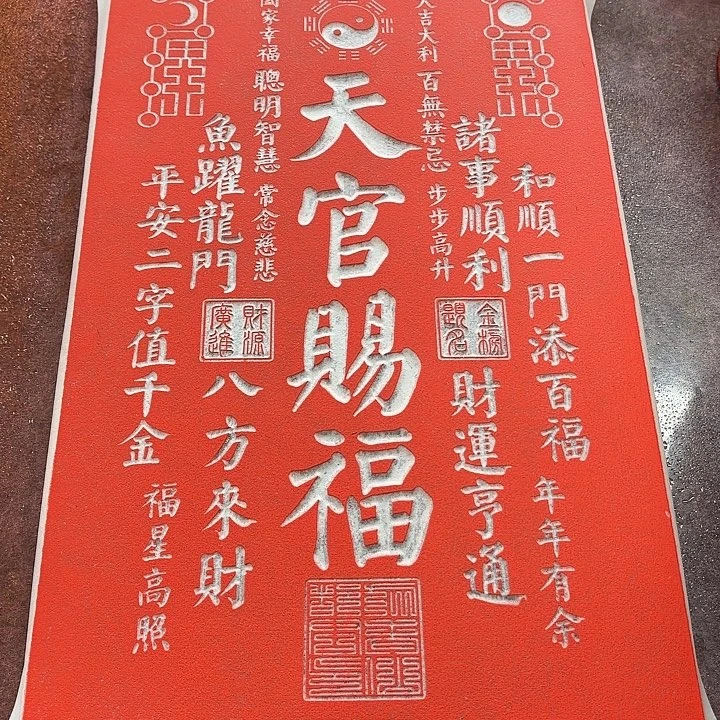 和順一門添百福 年年有余
諸事順利 金榜題名 財運亨通
吉大利 百無禁忌 步步高升
天官賜福
家幸福 聰明智慧 常念慈悲
魚躍龍門 財源廣進 八方來財
平安二字值千金 福星高照